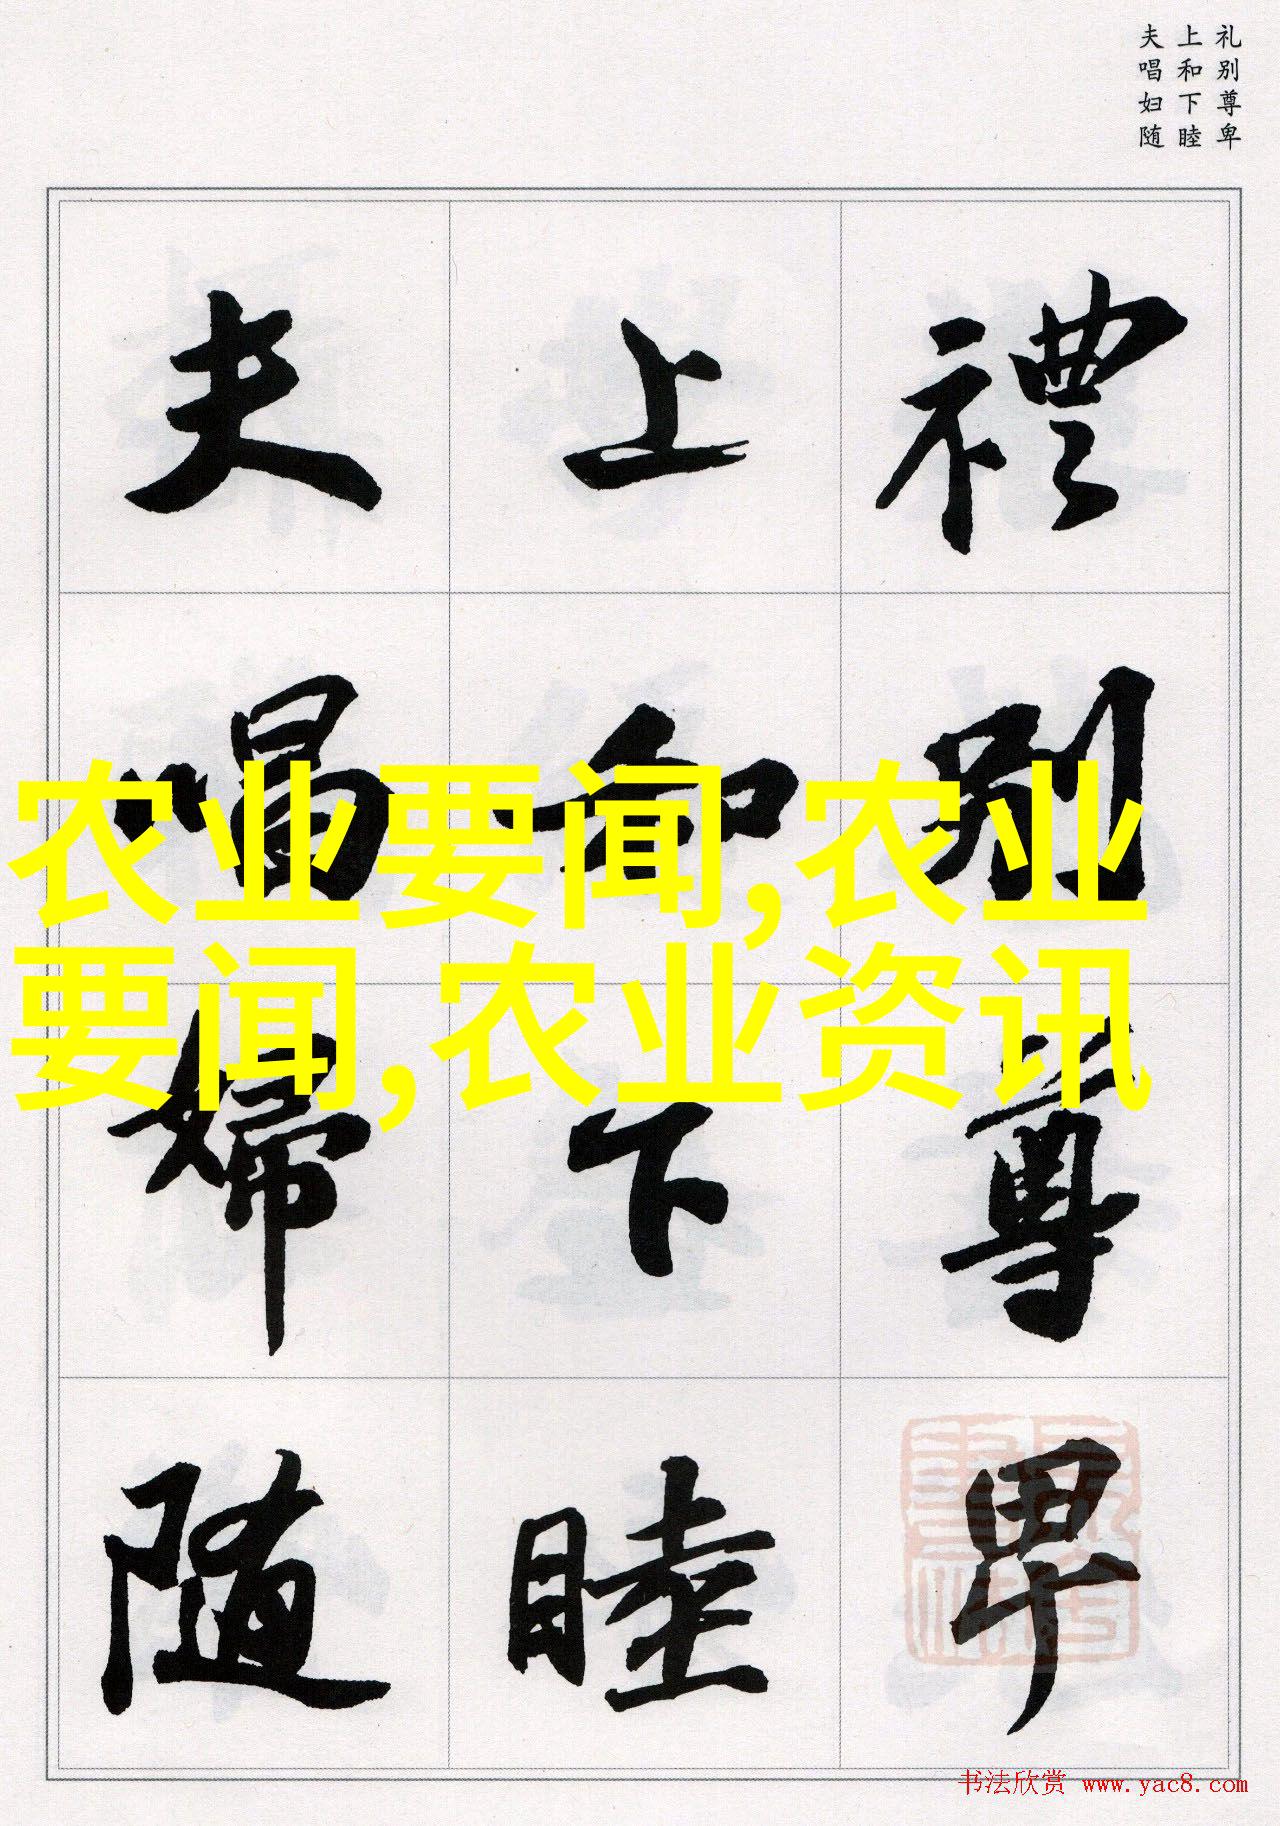 礼别尊卑
上和下睦
夫唱妇随
禮别尊卑
上和下睦
夫唱婦随
农业要闻,农业
要闻,农业资讯
书法欣赏 www.yac8.com